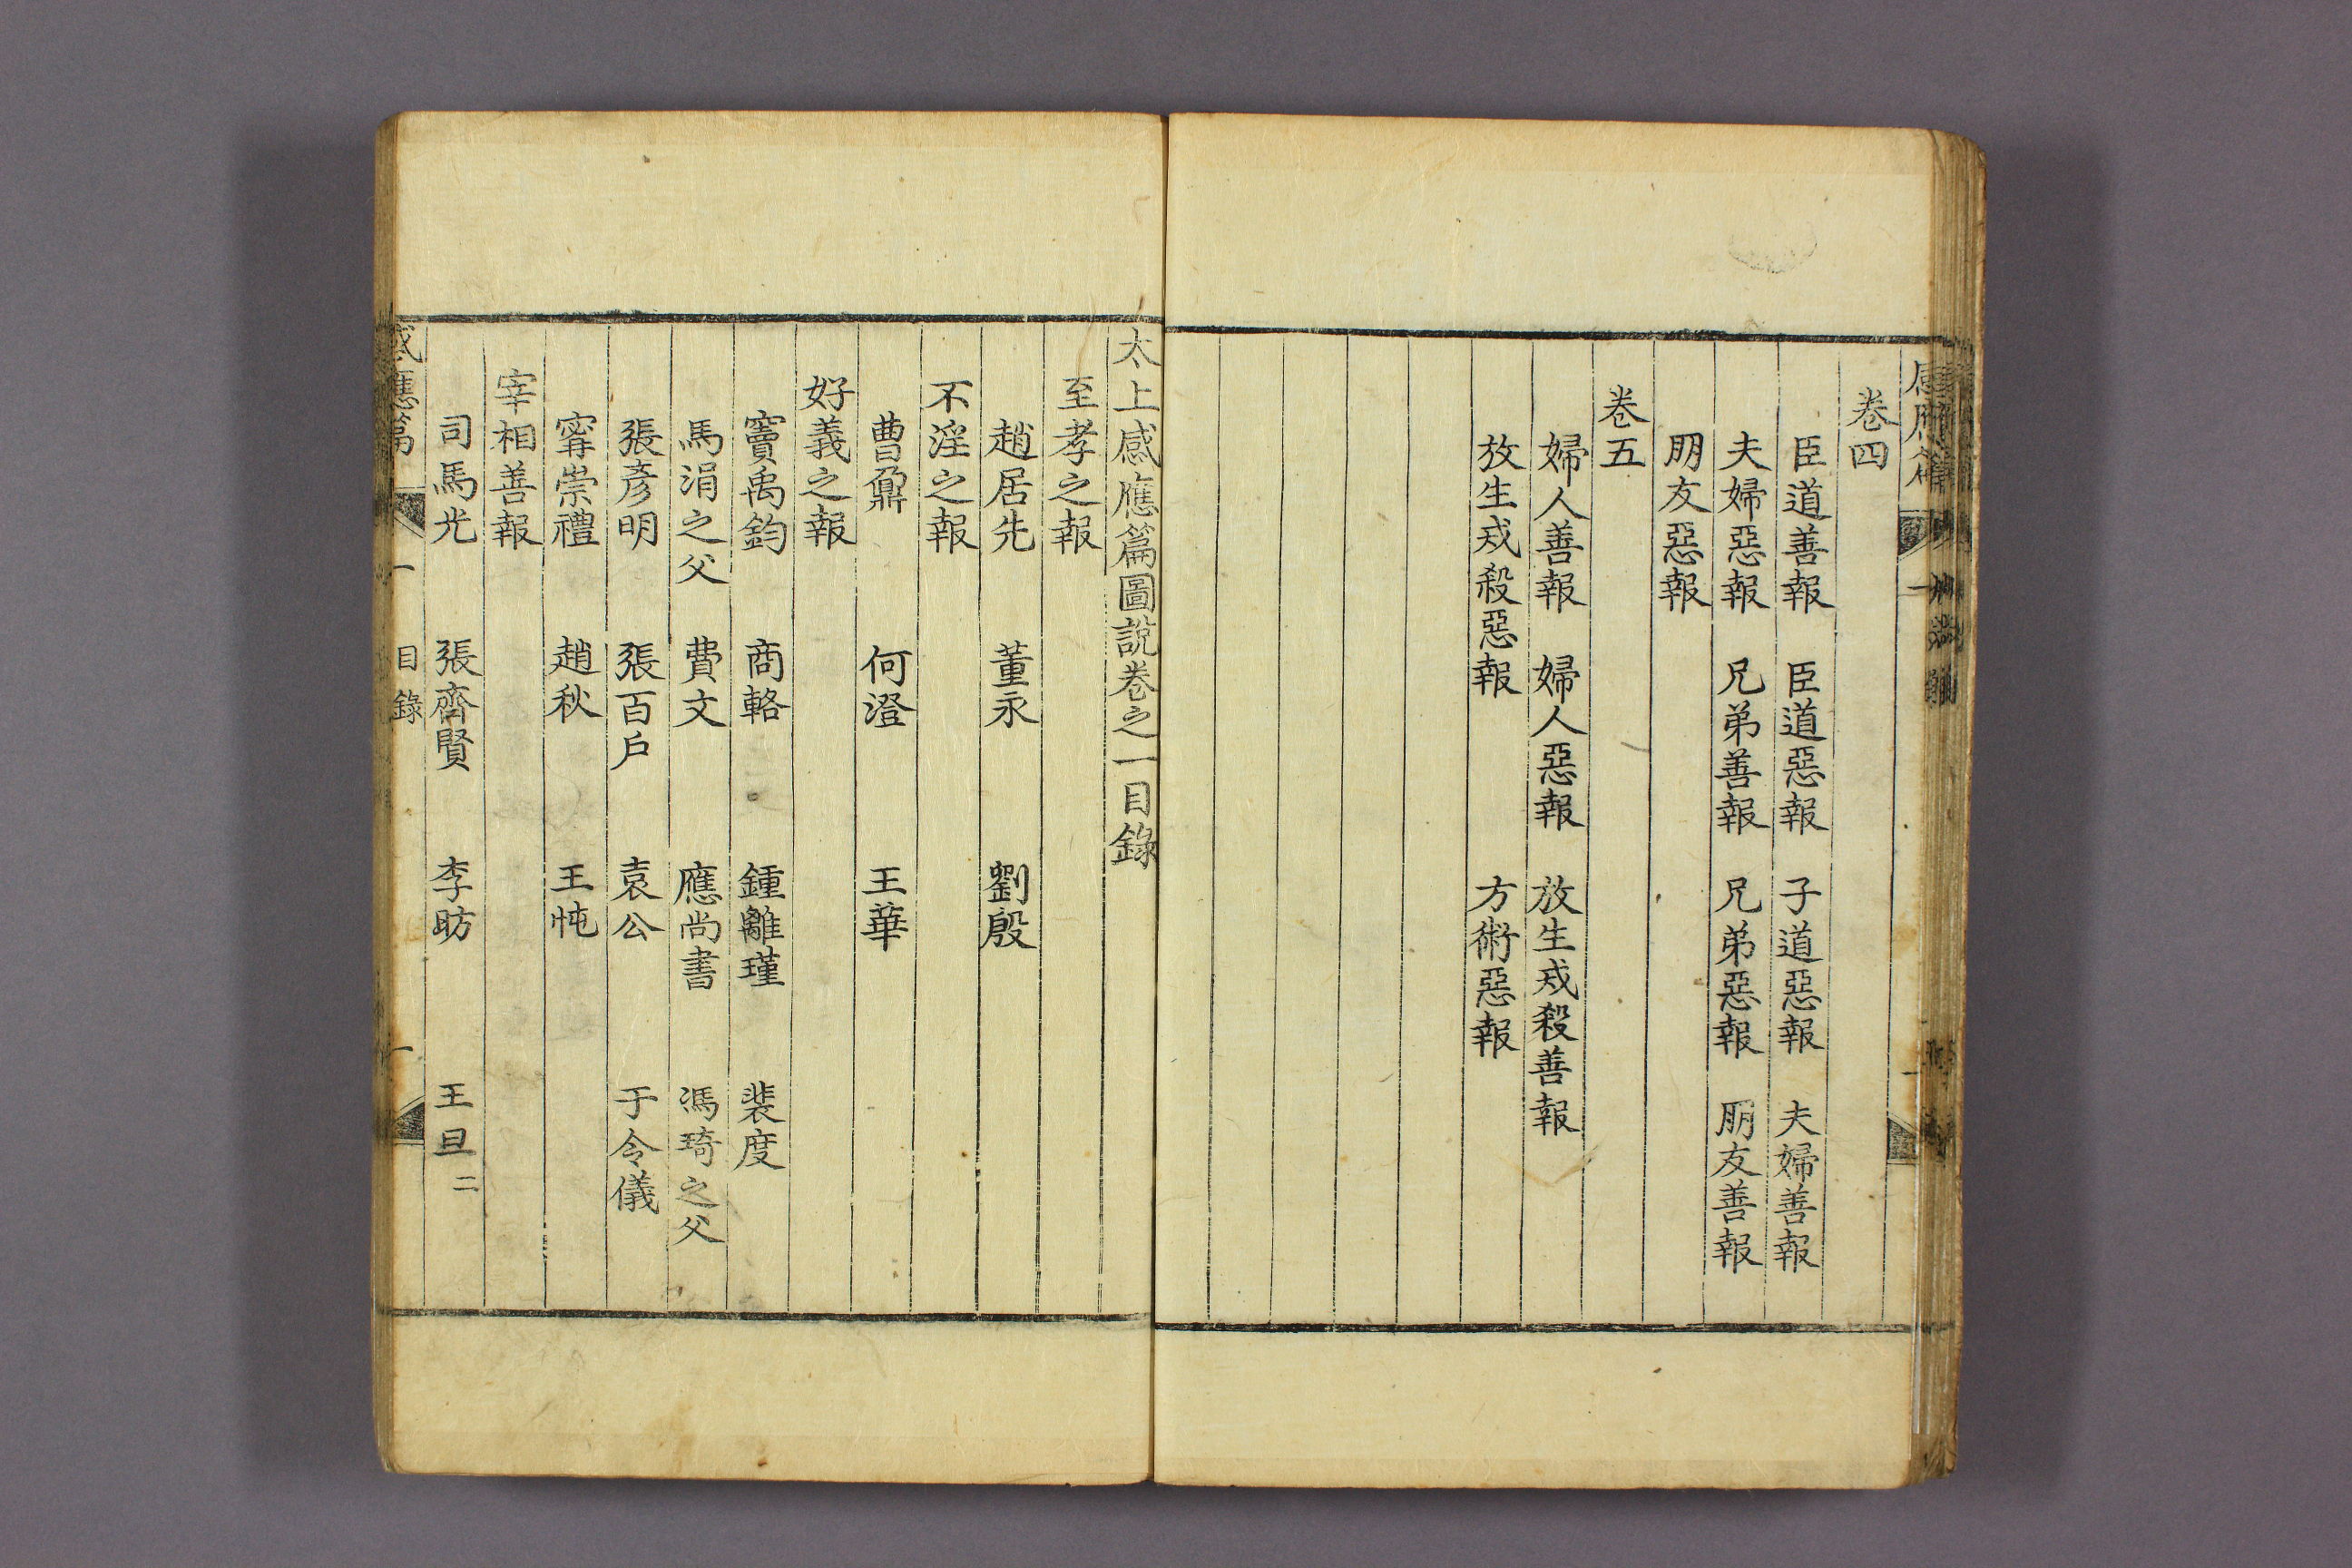 卷四
臣道善報 臣道惡報 子道惡報 夫婦善報
夫婦惡報 兄弟善報 兄弟惡報 朋友善報
朋友惡報
卷五
婦人善報 婦人惡報 放生戒殺善報
放生戒殺惡報 方術惡報
太上感應篇圖說卷之一目錄
至孝之報
趙居先 董永 劉殷
不淫之報
曹鼐 何澄 王華
好義之報
竇禹鈞 商輅 鍾離瑾 裴度
馬涓之父 費文 應尚書 馮琦之父
張彥明 張百戶 袁公 于令儀
甯崇禮 趙秋 王忳
宰相善報
司馬光 張齊賢 李昉 王旦 二
感應篇 一 目錄 一